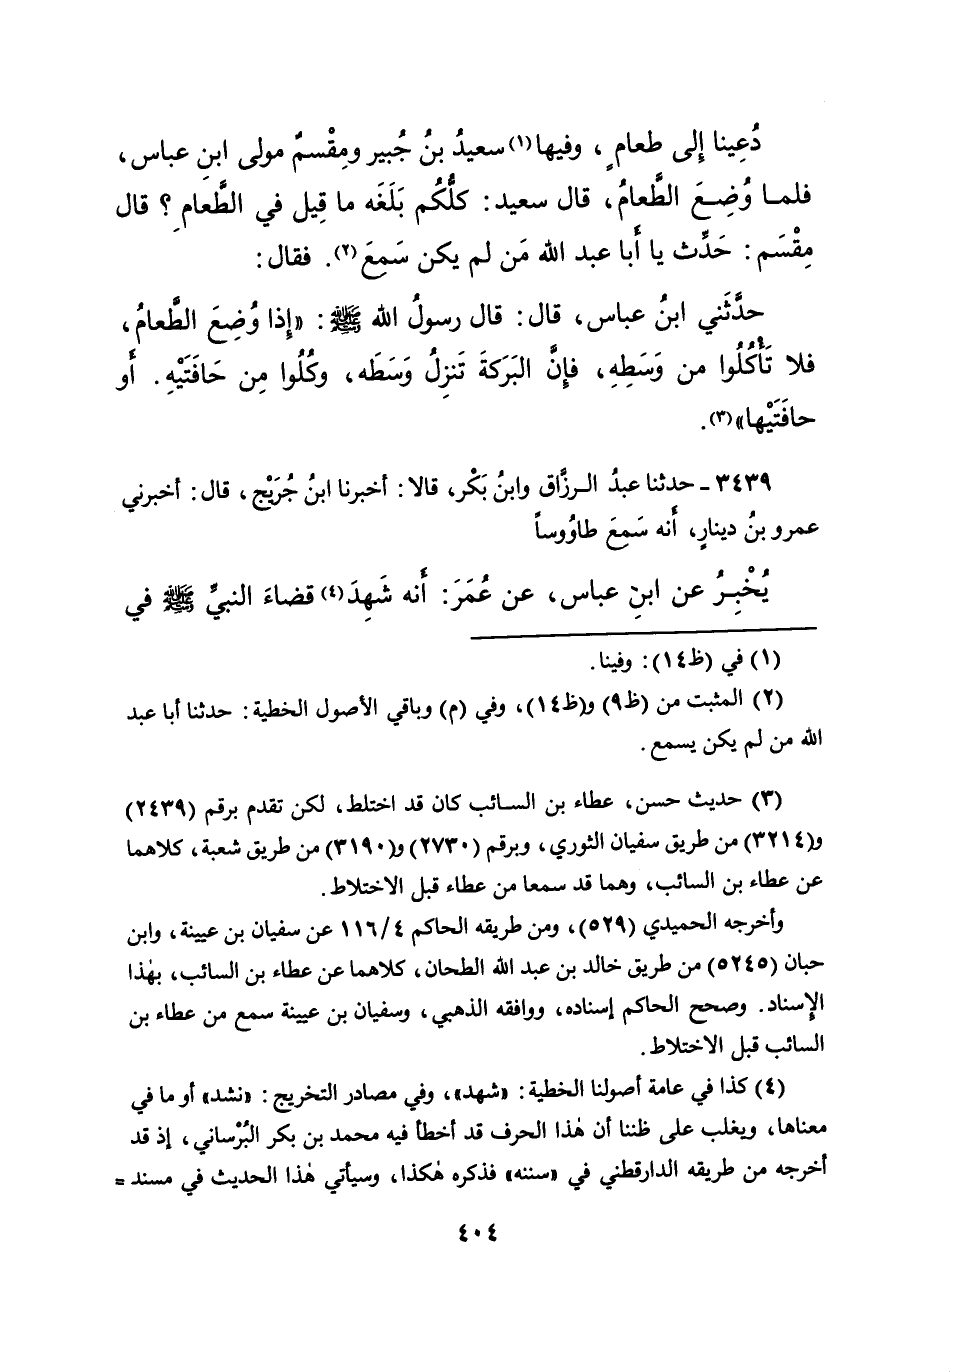 دُعِينا إلى طعامٍ، وفيها(١) سعيدُ بنُ جُبير ومِقْسمٌ مولى ابنِ عباس،
فلمـا وُضِـعَ الطَّعامُ، قال سعيد: كلُّكُم بَلَغَه ما قيل في الطَّعامِ؟ قال
مِقْسَم: حَدِّث يا أَبا عبد الله مَن لم يكن سَمِعَ(٢). فقال:
حدَّثَني ابنُ عباس، قال: قال رسولُ الله ﷺ: «إذا وُضِعَ الطَّعامُ،
فلا تَأْكُلُوا من وَسَطِهِ، فإنَّ البَرَكةَ تَنزِلُ وَسَطَه، وكُلُوا مِن حَافَتَيْهِ. أَو
حافَتَيْها»(٣).
٣٤٣٩ ـ حدثنا عبدُ الـرزَّاق وابنُ بَكْر، قالا: أخبرنا ابنُ جُرَيْج، قال: أخبرني
عمرو بنُ دينارٍ، أنه سَمِعَ طاوُوساً
يُخْبِـرُ عن ابنِ عباس، عن عُمَرَ: أَنه شَهِدَ(٤) قضاءَ النبيِّ ﷺ في
(١) في (ظ١٤): وفينا.
(٢) المثبت من (ظ٩) و(ظ١٤)، وفي (م) وباقي الأصول الخطية: حدثنا أبا عبد
الله من لم يكن يسمع.
(٣) حديث حسن، عطاء بن السـائب كان قد اختلط، لكن تقدم برقم (٢٤٣٩)
و(٣٢١٤) من طريق سفيان الثوري، وبرقم (٢٧٣٠) و(٣١٩٠) من طريق شعبة، كلاهما
عن عطاء بن السائب، وهما قد سمعا من عطاء قبل الاختلاط.
وأخرجه الحميدي (٥٢٩)، ومن طريقه الحاكم ١١٦/٤ عن سفيان بن عيينة، وابن
حبان (٥٢٤٥) من طريق خالد بن عبد الله الطحان، كلاهما عن عطاء بن السائب، بهٰذا
الإسناد. وصحح الحاكم إسناده، ووافقه الذهبي، وسفيان بن عيينة سمع من عطاء بن
السائب قبل الاختلاط.
(٤) كذا في عامة أصولنا الخطية: «شهد»، وفي مصادر التخريج: «نشد» أو ما في
معناها، ويغلب على ظننا أن هٰذا الحرف قد أخطأ فيه محمد بن بكر البُرْساني، إذ قد
أخرجه من طريقه الدارقطني في «سننه» فذكره هٰكذا، وسيأتي هٰذا الحديث في مسند =
٤٠٤